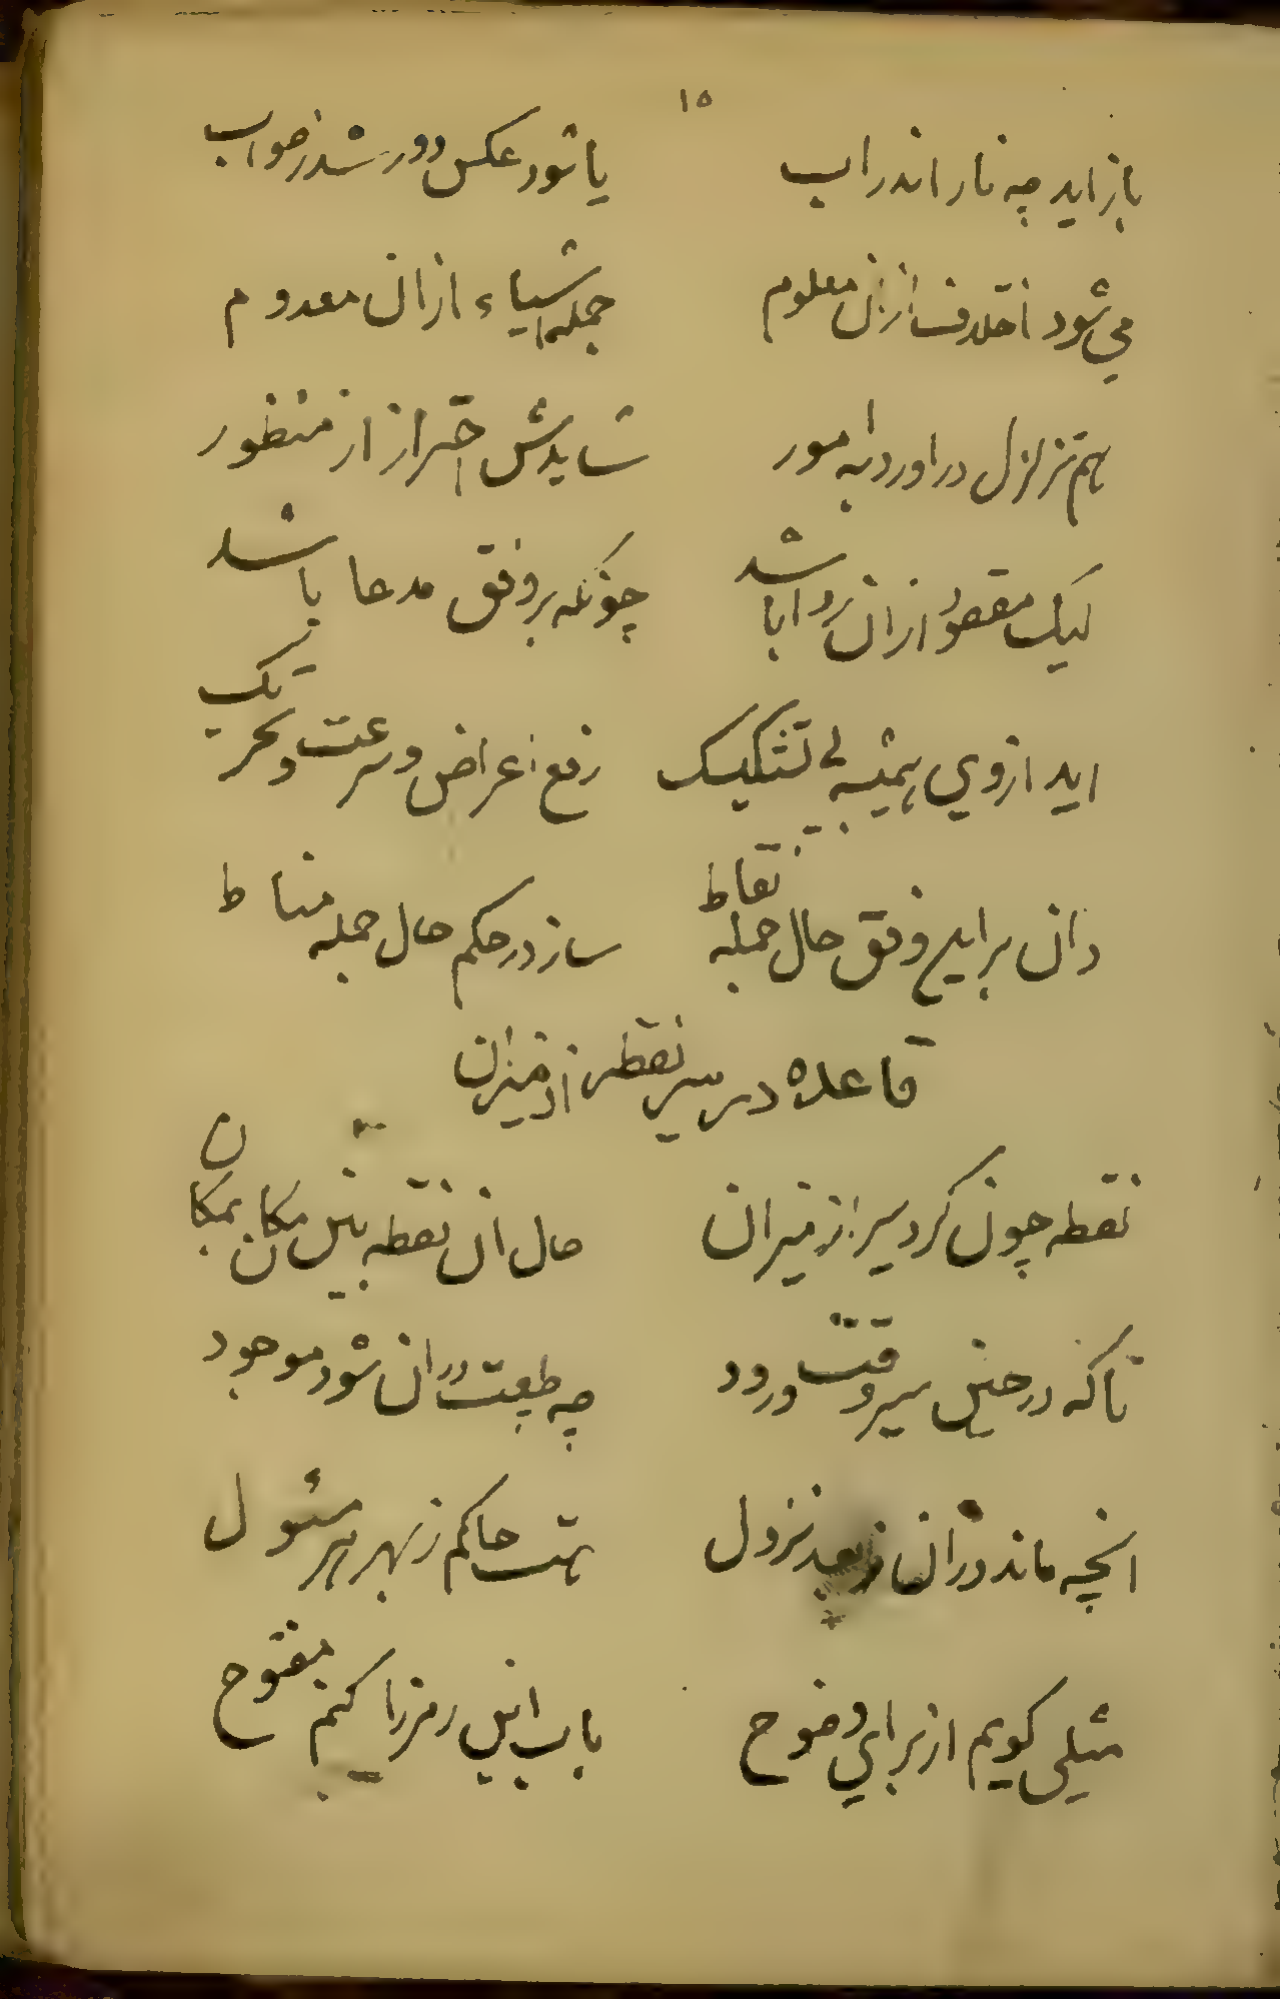 ١٥
باز اید چه نار اندر اب یا شود عکس دور شد ز صواب
می شود اختلاف ازان معلوم جمله اشیاء ازان معدوم
هم تزلزل در اورد به امور شایدش احتراز از منظور
لیک مقصود ازان روا باشد چونکه بر وفق مدعا باشد
اید ازوی همیشه بی تشکیک رفع اعراض و سرعت و تحریک
دان براین وفق حال جمله نقاط ساز در حکم حال جمله مناط
قاعده در سیر نقطه از میزان
نقطه چون کرد سیر از میزان حال ان نقطه بین مکان بمکان
تا که در حین سیر وقت ورود چه طبیعت دران شود موجود
انچه ماند دران ز بعد نزول هست حاکم ز بهر هر مسئول
مثلی کویم از برای وضوح باب این رمز را کنم مفتوح